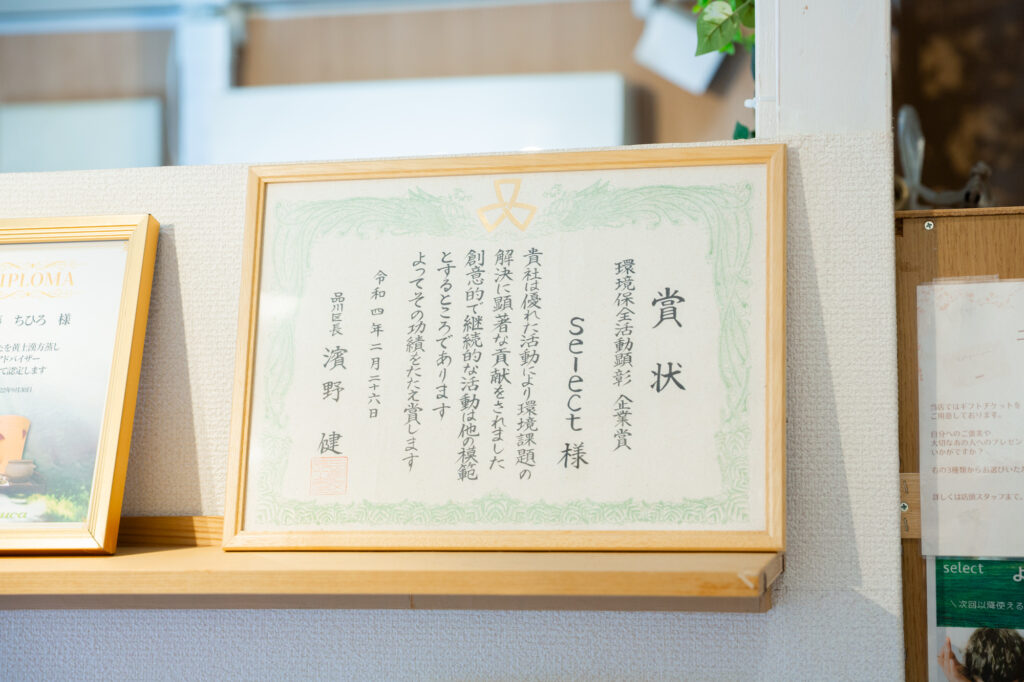 賞状
環境保全活動顕彰 企業賞
select 様
貴社は優れた活動により環境課題の
解決に顕著な貢献をされました
創意的で継続的な活動は他の模範
とするところであります
よってその功績をたたえ賞します
令和四年二月二十六日
品川区長 濱野 健
IPLOMA
ちひろ 様
を黄土漢方蒸し
アドバイザー
て認定します
22年9月30日
当店ではギフトチケットを
ご用意しております。
自分へのご褒美や
大切なあの人へのプレゼン
いかがですか？
右の3種類からお選びいた
詳しくは店頭スタッフまで。
select よ
＼次回以降使える